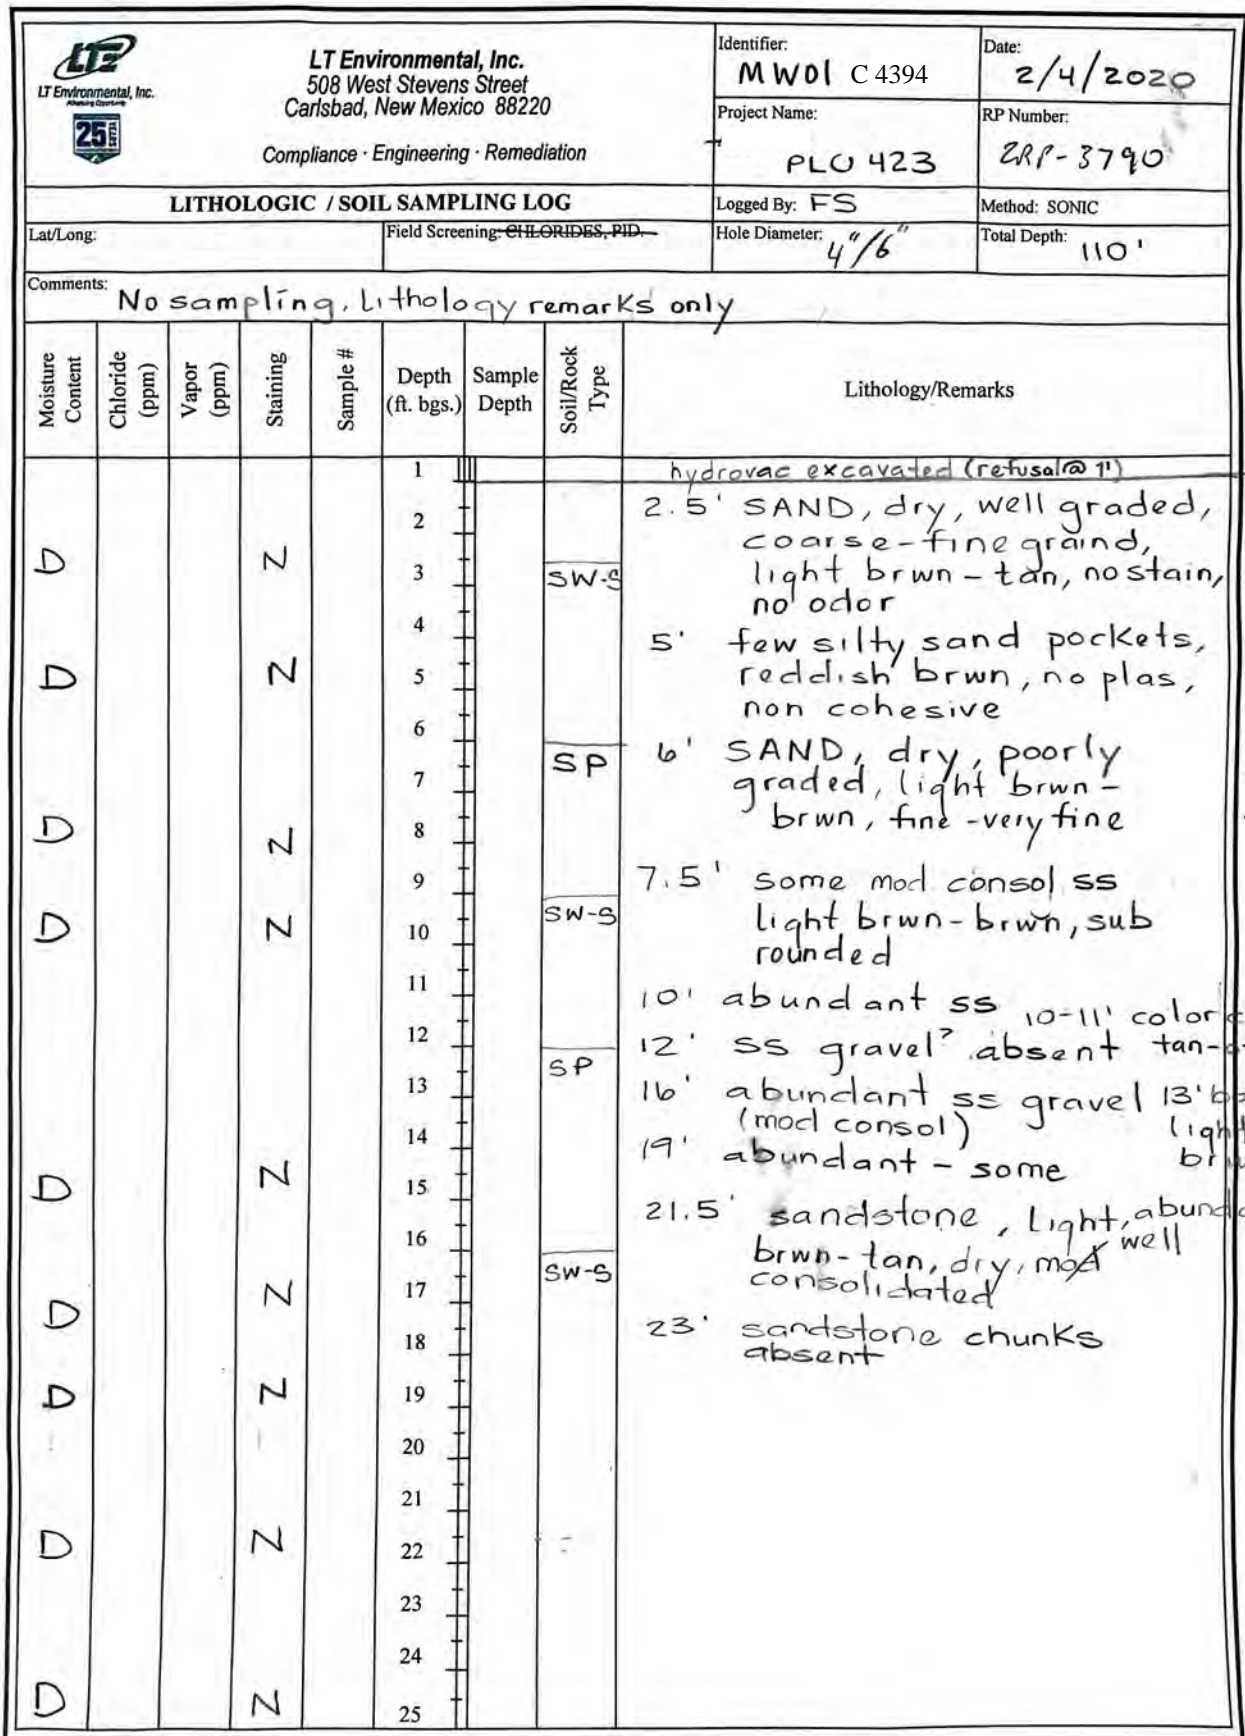 LTE
LT Environmental, Inc.
Advancing Opportunity
25
YEARS
LT Environmental, Inc.
508 West Stevens Street
Carlsbad, New Mexico 88220
Compliance · Engineering · Remediation
Identifier:
MW01 C 4394
Date:
2/4/2020
Project Name:
PLU 423
RP Number:
2RP-3790
LITHOLOGIC / SOIL SAMPLING LOG
Logged By: FS
Method: SONIC
Lat/Long:
Field Screening: CHLORIDES, PID.
Hole Diameter: 4"/6"
Total Depth: 110'
Comments: No sampling, Lithology remarks only
Moisture Content
Chloride (ppm)
Vapor (ppm)
Staining
Sample #
Depth (ft. bgs.)
Sample Depth
Soil/Rock Type
Lithology/Remarks
1 hydrovac excavated (refusal@ 1')
2 2.5' SAND, dry, well graded,
coarse-fine graind,
D N 3 SW-S light brwn-tan, no stain,
no odor
4 5' few silty sand pockets,
D N 5 reddish brwn, no plas,
non cohesive
6
SP 6' SAND, dry, poorly
7 graded, light brwn-
D N 8 brwn, fine-very fine
9 7.5' some mod consol ss
D N 10 SW-S light brwn-brwn, sub
rounded
11 10' abundant ss 10-11' color
12 12' ss gravel? absent tan-
13 SP 16' abundant ss gravel 13'
14 (mod consol)
19' abundant - some
D N 15
21.5' sandstone, Light,
16 brwn-tan, dry, mod well
D N 17 SW-S consolidated
18 23' sandstone chunks
absent
D N 19
20
21
D N 22
23
24
D N 25